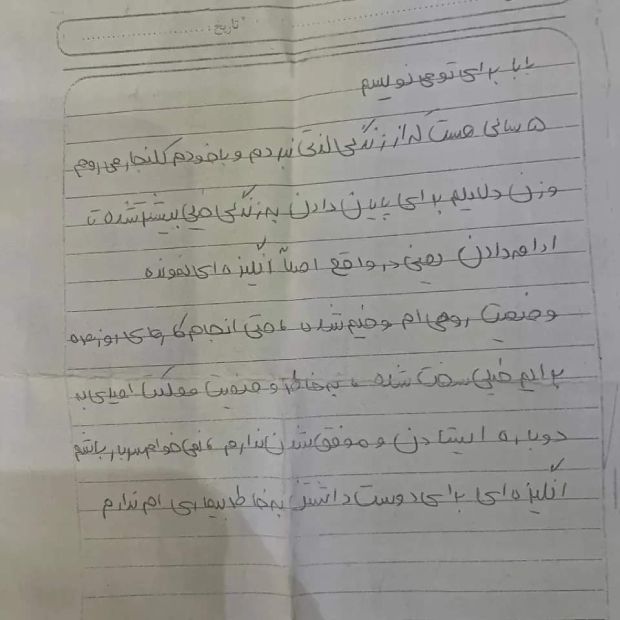 تاریخ:
بابا برای تو می نویسم
۵ سالی هست که از زندگی لذتی نبردم و با خودم کلنجار می روم
وزن دلایلم برای پایان دادن به زندگی خیلی بیشتر شده تا
ادامه دادن یعنی در واقع اصلاً انگیزه ای نمونده
وضعیت روحی ام وخیم شده ، حتی انجام کارهای روزمره
برایم خیلی سخت شده ، به خاطر وضعیت مملکت امیدی به
دوباره ایستادن و موفق شدن ندارم ، نمی خواهم سربار باشم
انگیزه ای برای دوست داشتن به خاطر بیماری ام ندارم